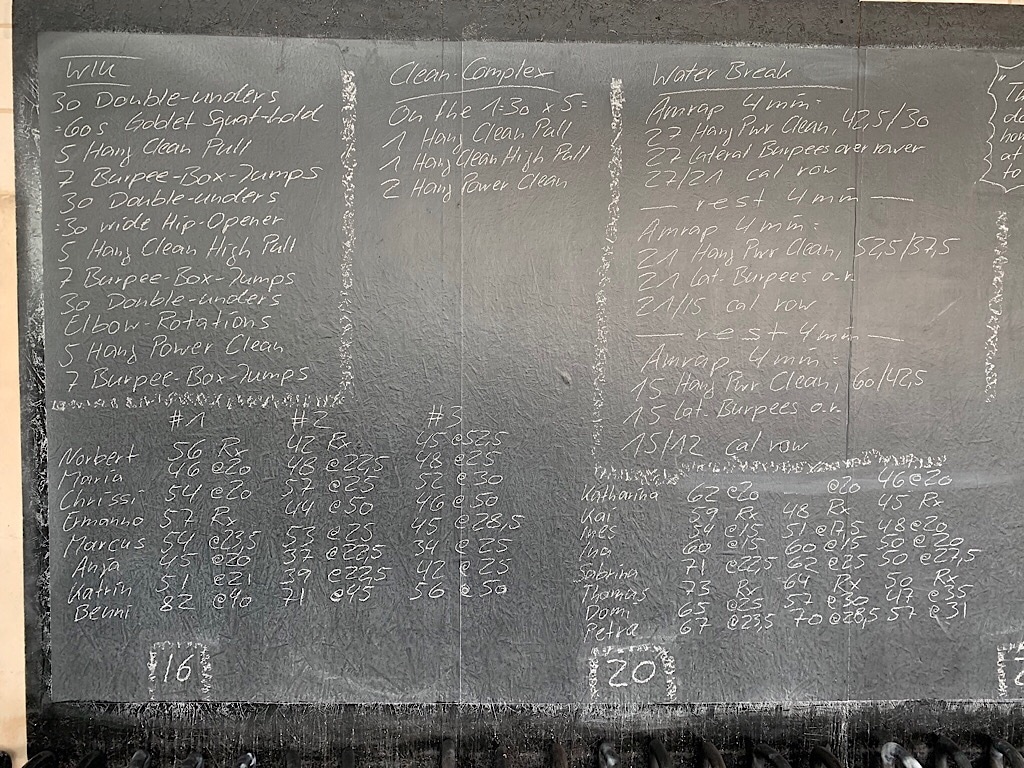 W/U
30 Double-unders
:60s Goblet Squat-hold
5 Hang Clean Pull
7 Burpee-Box-Jumps
30 Double-unders
:30 wide Hip-Opener
5 Hang Clean High Pull
7 Burpee-Box-Jumps
30 Double-unders
Elbow-Rotations
5 Hang Power Clean
7 Burpee-Box-Jumps
Clean-Complex
On the 1:30 x 5:
1 Hang Clean Pull
1 Hang Clean High Pull
2 Hang Power Clean
Water Break
Amrap 4 min:
27 Hang Pwr Clean, 42,5/30
27 Lateral Burpees over rower
27/21 cal row
— rest 4 min —
Amrap 4 min:
21 Hang Pwr Clean, 52,5/37,5
21 Lat. Burpees o.r.
21/15 cal row
— rest 4 min —
Amrap 4 min:
15 Hang Pwr Clean, 60/42,5
15 Lat. Burpees o.r.
15/12 cal row
#1 #2 #3
Norbert 56 Rx 42 Rx 45 @52,5
Maria 46 @20 48 @22,5 48 @25
Chrissi 54 @20 57 @25 52 @30
Ermanno 57 Rx 44 @50 46 @50
Marcus 54 @23,5 53 @25 45 @28,5
Anja 45 @20 37 @22,5 34 @25
Katrin 51 @21 39 @22,5 42 @25
Benni 82 @40 71 @45 56 @50
16
Katharina 62 @20 @20 46 @20
Kai 59 Rx 48 Rx 45 Rx
Ines 54 @15 51 @17,5 48 @20
Ina 60 @15 60 @15 50 @20
Sabrina 71 @22,5 62 @25 50 @27,5
Thomas 73 Rx 64 Rx 50 Rx
Domi 65 @25 57 @30 47 @35
Petra 67 @23,5 70 @28,5 57 @31
20